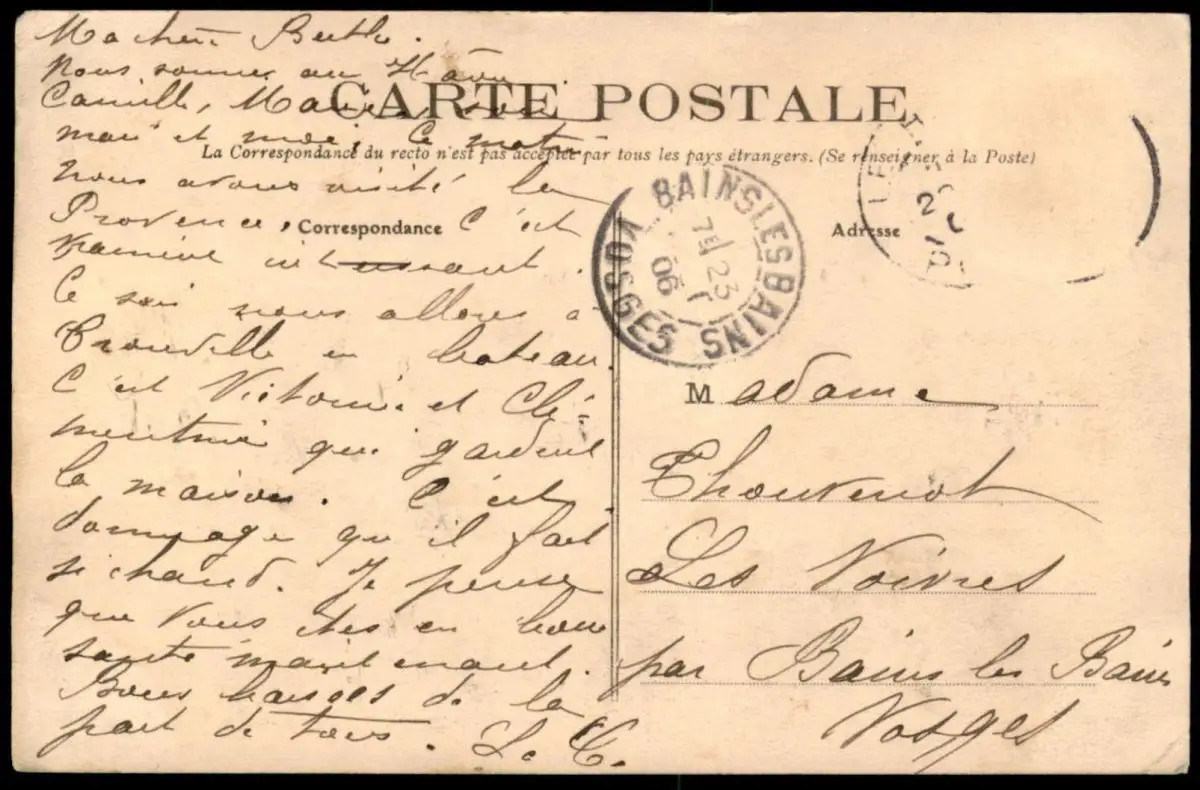 Ma chère Berthe.
Nous sommes au Hâvre
Camille, Marie, son
mari et moi, ce matin
nous avons visité la
Provence, c'est
vraiment intéressant.
Ce soir nous allons à
Trouville en bateau.
C'est Victorine et Clé-
mentine qui gardent
la maison. C'est
dommage qu'il fait
si chaud. Je pense
que vous êtes en bonne
santé maintenant.
Bons baisers de la
part de tous. L. C.
CARTE POSTALE
La Correspondance du recto n'est pas acceptée par tous les pays étrangers. (Se renseigner à la Poste)
Correspondance
Adresse
BAINS LES BAINS
VOSGES
23
06
Madame
Thouvenot
Les Voivres
par Bains les Bains
Vosges